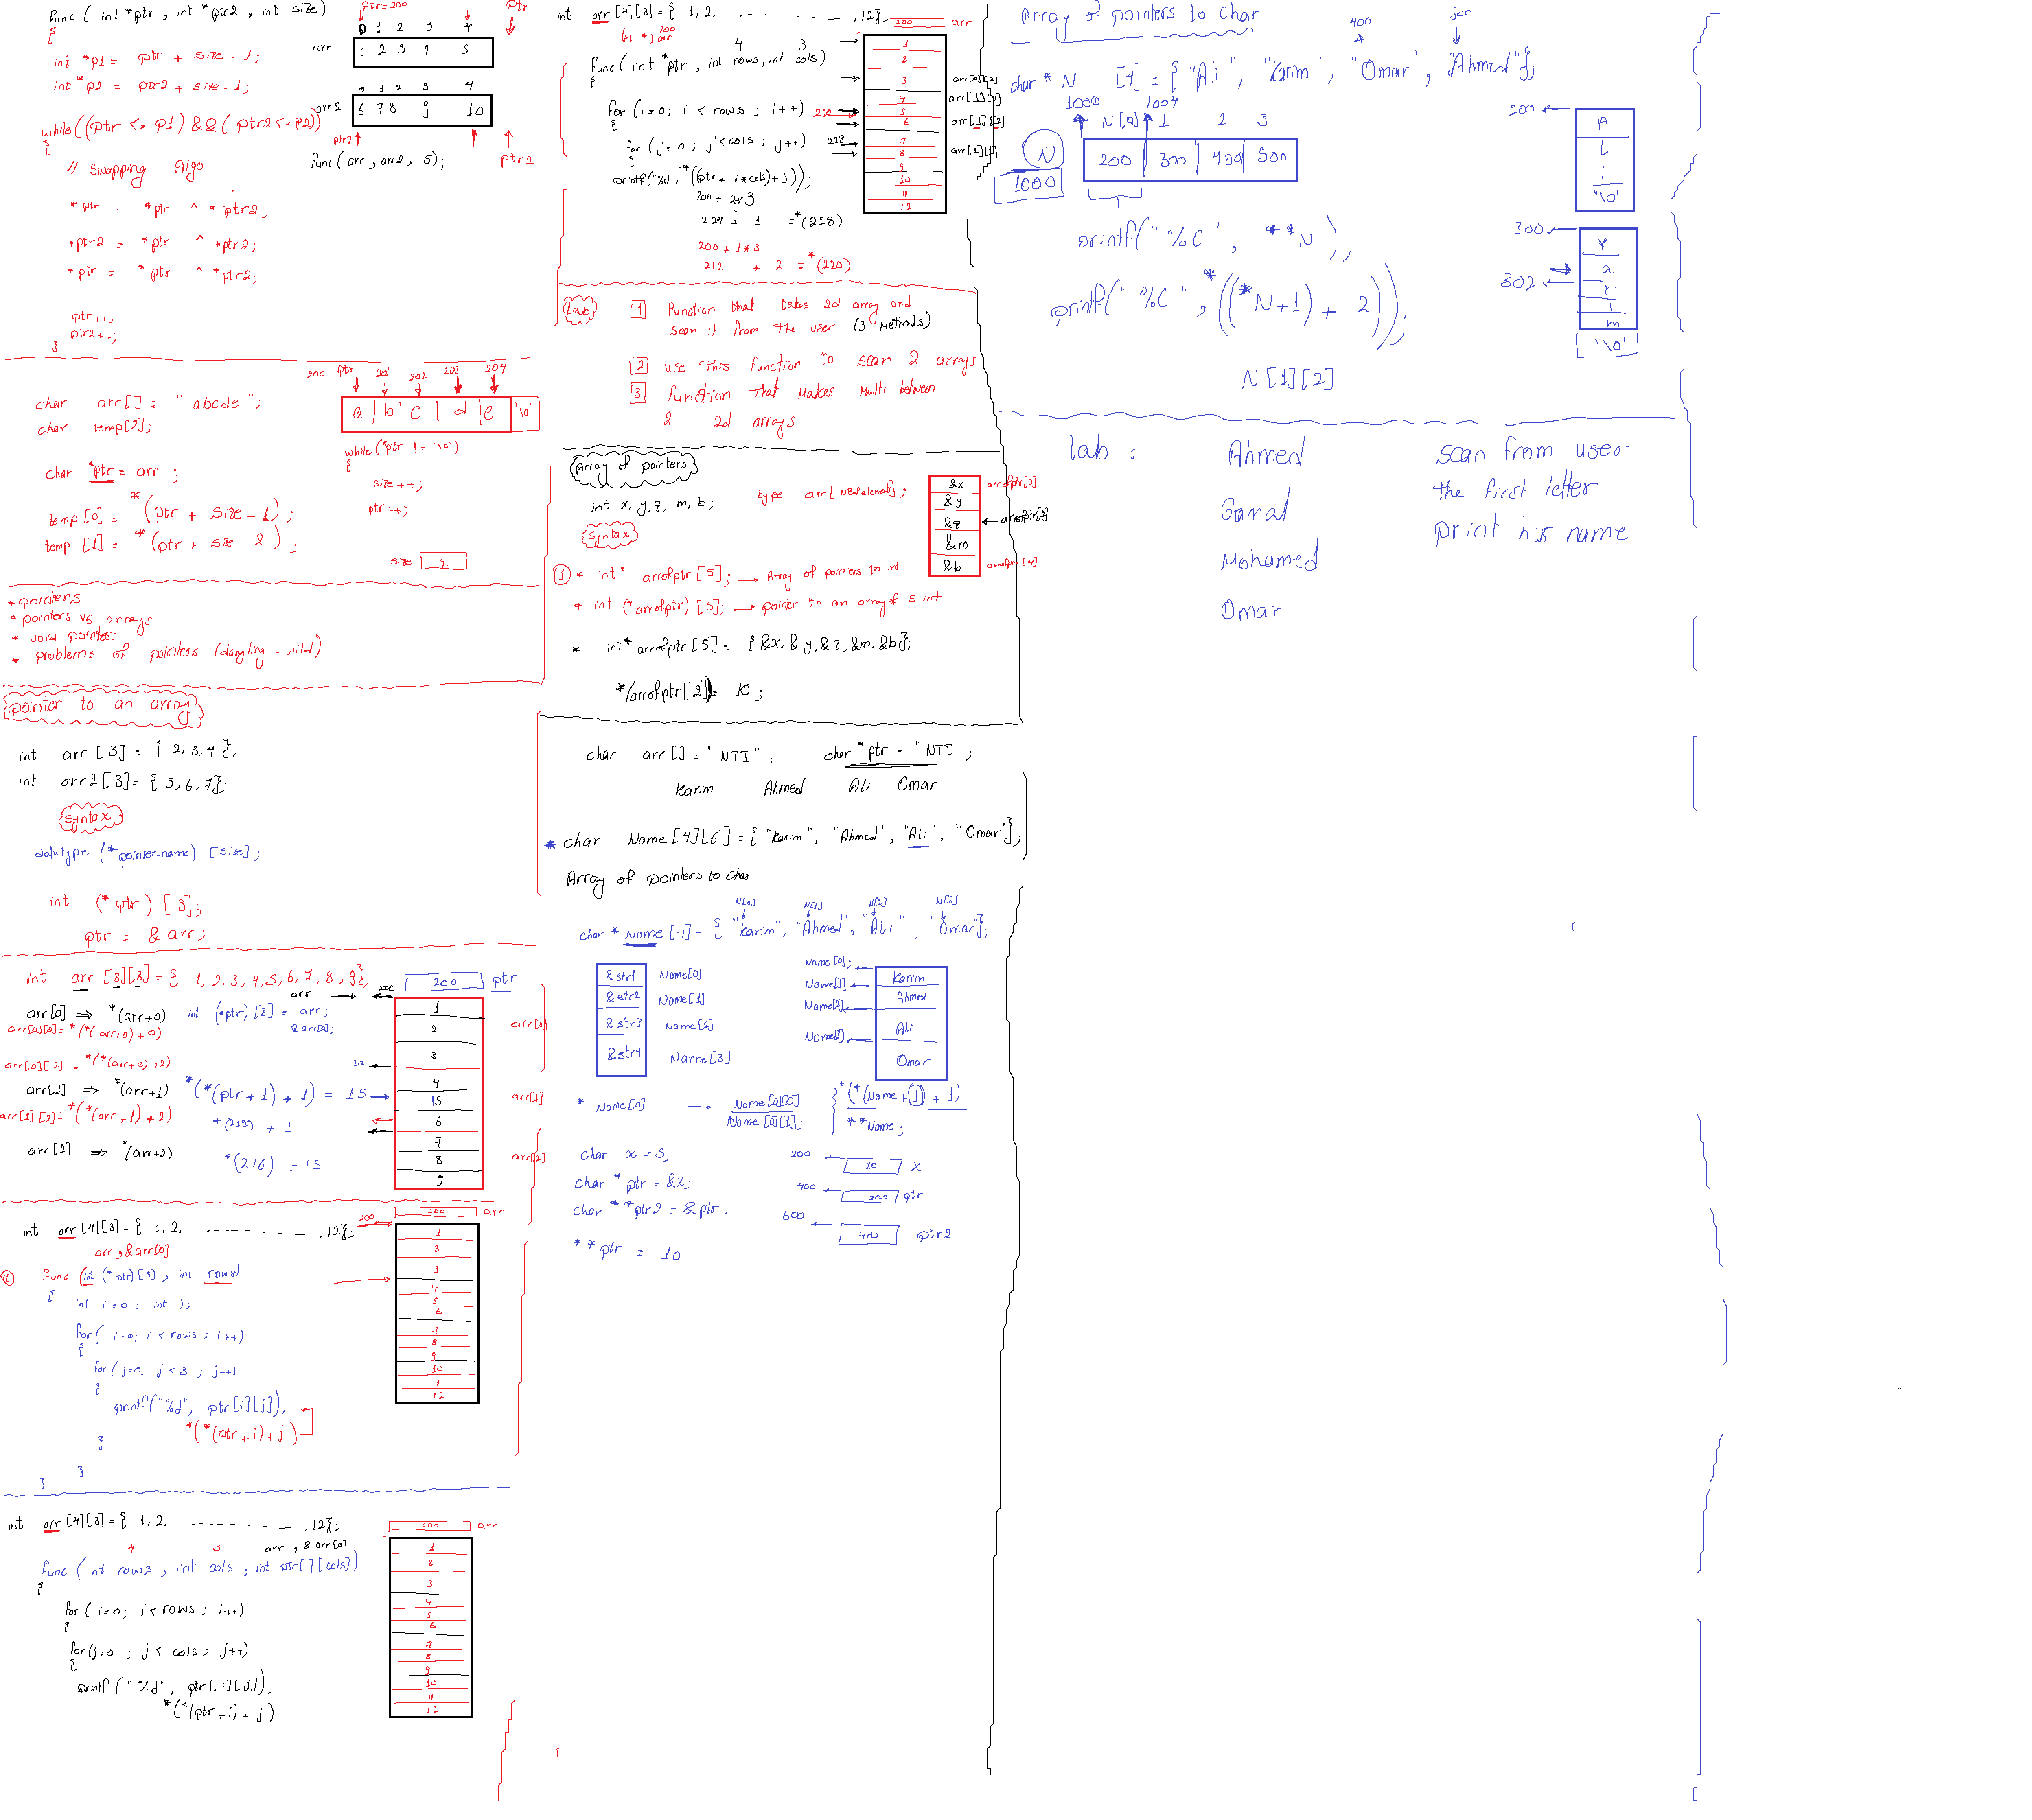 func ( int *ptr , int *ptr2 , int size )
{
int *p1 = ptr + size - 1;
int *p2 = ptr2 + size - 1;
while((ptr <= p1) && ( ptr2 <= p2))
{
// swapping Algo
*ptr = *ptr ^ *ptr2;
*ptr2 = *ptr ^ *ptr2;
*ptr = *ptr ^ *ptr2;
ptr++;
ptr2++;
}
ptr=200
ptr
0 1 2 3 4
arr 1 2 3 4 5
0 1 2 3 4
arr2 6 7 8 9 10
ptr2
ptr2
func (arr, arr2, 5);
char arr[] = "abcde";
char temp[2];
char *ptr = arr ;
temp[0] = *(ptr + size - 1);
temp [1] = *(ptr + size - 2) ;
200 ptr 201 202 203 204
a b c d e '\0'
while(*ptr != '\0')
{
size ++;
ptr++;
size 4
* pointers
* pointers vs arrays
* void pointers
* problems of pointers (dangling - wild)
pointer to an array
int arr [3] = { 2, 3, 4 };
int arr2 [3] = { 5, 6, 7};
syntax
datatype (*pointer-name) [size];
int (* ptr ) [3];
ptr = & arr;
int arr [3][3] = { 1, 2, 3, 4, 5, 6, 7, 8, 9};
200 ptr
arr 200
arr[0] ⇒ *(arr+0) int (*ptr)[3] = arr;
arr[0][0] = *(*(arr+0)+0) &arr[0];
arr[0][2] = *(*(arr+0)+2)
212
arr[1] ⇒ *(arr+1) *(*(ptr+1)+1) = 15
arr[1][2] = *(*(arr+1)+2) *(212) + 1
arr[2] ⇒ *(arr+2) *(216) = 15
1
2 arr[0]
3
4
15 arr[1]
6
7
8 arr[2]
9
int arr [4][3] = { 1, 2, ------- , 12};
arr , &arr[0]
func (int (*ptr)[3] , int rows)
{
int i=0 ; int j;
for( i=0; i < rows ; i++)
{
for (j=0; j < 3 ; j++)
{
printf("%d", ptr[i][j]);
*(*(ptr+i)+j)
}
}
}
200 arr
200
1
2
3
4
5
6
7
8
9
10
11
12
int arr [4][3] = { 1, 2, ------- , 12};
4 3 arr , & arr[0]
func (int rows , int cols , int ptr[][cols])
{
for ( i=0; i < rows ; i++)
{
for(j=0 ; j < cols ; j++)
{
printf ("%d", ptr[i][j]);
*(*(ptr+i)+j)
200 arr
1
2
3
4
5
6
7
8
9
10
11
12
int arr [4][3] = { 1, 2, ------- , 12};
200
(int *) arr
4 3
func ( int *ptr , int rows, int cols)
{
for (i=0; i < rows ; i++)
{
for (j=0; j < cols ; j++)
{
printf("%d", *((ptr+ i*cols)+j));
200 + 2*3
224 + 1 = *(228)
200 + 1*3
212 + 2 = *(220)
200 arr
1
2
3 arr[0][2]
4 arr[1][0]
220 5
6 arr[1][2]
228 7
8 arr[2][1]
9
10
11
12
Lab
1 Function that takes 2d array and
scan it from the user (3 Methods)
2 use this function to scan 2 arrays
3 function that makes Multi between
2 2d arrays
Array of pointers
int x, y, z, m, b;
type arr[NBofelements];
syntax
&x
&y
&z
&m
&b
1 * int* arrofptr [5]; → Array of pointers to int
* int (*arrofptr) [5]; → pointer to an array of 5 int
* int* arrofptr [5] = {&x, &y, &z, &m, &b};
*(arrofptr[2]) = 10 ;
char arr[] = "NTI" ; char *ptr = "NTI" ;
Karim Ahmed Ali Omar
* char Name [4][6] = { "Karim", "Ahmed", "Ali", "Omar"};
Array of pointers to char
N[0] N[1] N[2] N[3]
char * Name [4] = { "Karim", "Ahmed", "Ali" , "Omar"};
&str1 Name[0]
&str2 Name[1]
&str3 Name[2]
&str4 Name[3]
Name[0]; Karim
Name[1] Ahmed
Name[2] Ali
Name[3] Omar
* Name[0] → Name[0][0]
Name[0][1];
*(*(Name+1)+1)
**Name;
char x = 5;
char * ptr = &x;
char **ptr2 = &ptr;
**ptr = 10
200 10 x
400 200 ptr
600 400 ptr2
Array of pointers to char
400 500
char * N [4] = { "Ali", "Karim", "Omar", "Ahmed"};
1000 1004
N[0] 1 2 3
200 300 400 500
N
1000
printf(" %c ", **N );
printf(" %c ", *((*N+1) + 2));
N[1][2]
200
A
L
i
'\0'
300
K
a
302
r
i
m
'\0'
lab : Ahmed
Gamal
Mohamed
Omar
scan from user
the first letter
print his name